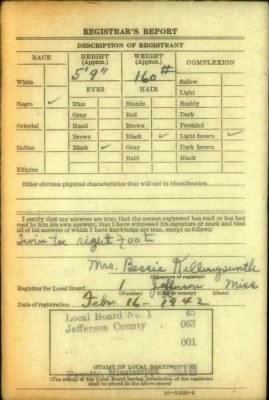 REGISTRAR'S REPORT
DESCRIPTION OF REGISTRANT
RACE HEIGHT (Approx.) WEIGHT (Approx.) COMPLEXION
5' 9" 160 #
White Sallow
EYES HAIR Light
Negro ✓ Blue Blonde Ruddy
Gray Red Dark
Oriental Hazel Brown Freckled
Brown Black ✓ Light brown ✓
Indian Black ✓ Gray Dark brown
Bald Black
Filipino
Other obvious physical characteristics that will aid in identification.
I certify that my answers are true; that the person registered has read or has had
read to him his own answers; that I have witnessed his signature or mark and that
all of his answers of which I have knowledge are true, except as follows:
Twin Toe right foot
Mrs. Bessie Killingsworth
Registrar for Local Board 1 Jefferson Miss
Date of registration Feb. 16 - 1942
Local Board No. 1 45
Jefferson County 063
001
Fayette, Mississippi
(STAMP OF LOCAL BOARD)
(The stamp of the Local Board having jurisdiction of the registrant
shall be placed in the above space.)